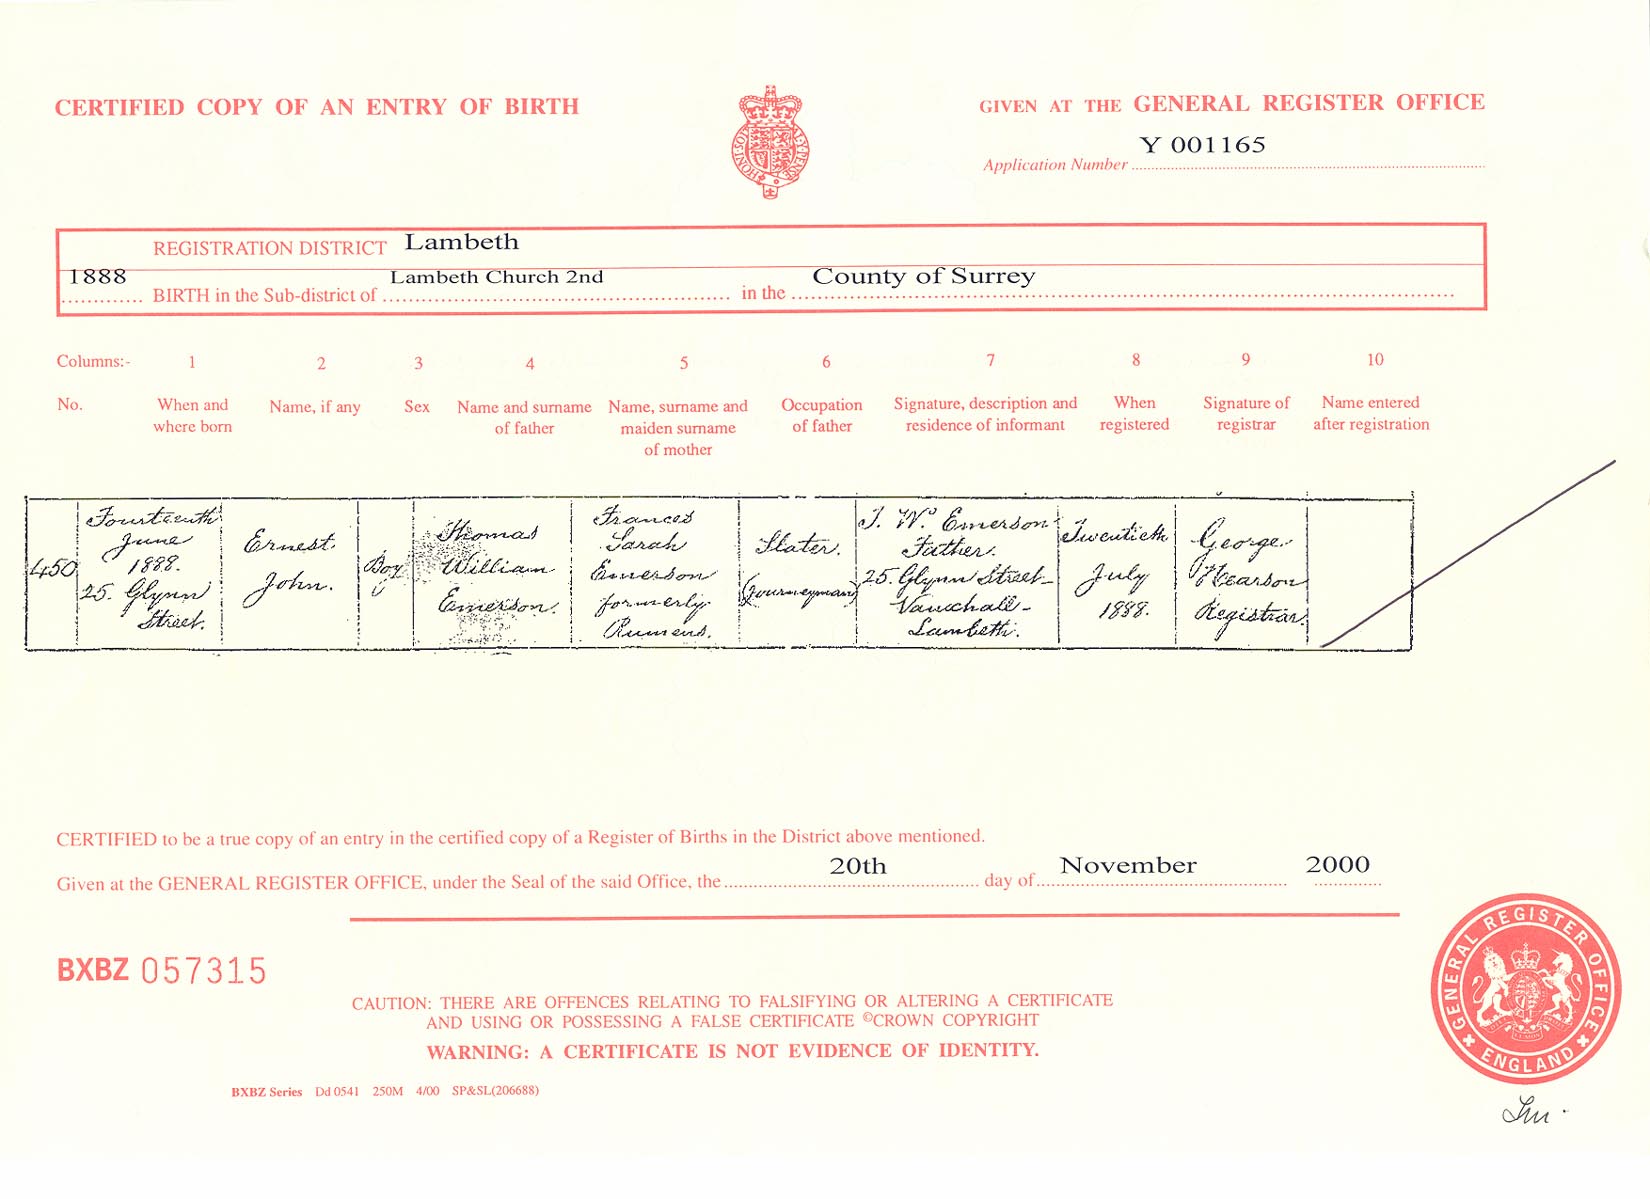 CERTIFIED COPY OF AN ENTRY OF BIRTH
GIVEN AT THE GENERAL REGISTER OFFICE
Application Number Y 001165
HONI SOIT QUI MAL Y PENSE
REGISTRATION DISTRICT Lambeth
1888 BIRTH in the Sub-district of Lambeth Church 2nd in the County of Surrey
Columns:- 1 2 3 4 5 6 7 8 9 10
No.
When and
where born
Name, if any
Sex
Name and surname
of father
Name, surname and
maiden surname
of mother
Occupation
of father
Signature, description and
residence of informant
When
registered
Signature of
registrar
Name entered
after registration
450
Fourteenth
June
1888.
25. Glynn
Street.
Ernest.
John.
Boy
Thomas
William
Emerson.
Frances
Sarah
Emerson
formerly
Rumens.
Slater.
(Journeyman)
T. W. Emerson
Father.
25. Glynn Street
Vauxhall
Lambeth.
Twentieth
July
1888.
George
Hearson
Registrar.
CERTIFIED to be a true copy of an entry in the certified copy of a Register of Births in the District above mentioned.
Given at the GENERAL REGISTER OFFICE, under the Seal of the said Office, the 20th day of November 2000
BXBZ 057315
CAUTION: THERE ARE OFFENCES RELATING TO FALSIFYING OR ALTERING A CERTIFICATE
AND USING OR POSSESSING A FALSE CERTIFICATE ©CROWN COPYRIGHT
WARNING: A CERTIFICATE IS NOT EVIDENCE OF IDENTITY.
BXBZ Series Dd 0541 250M 4/00 SP&SL(206688)
GENERAL REGISTER OFFICE
ENGLAND